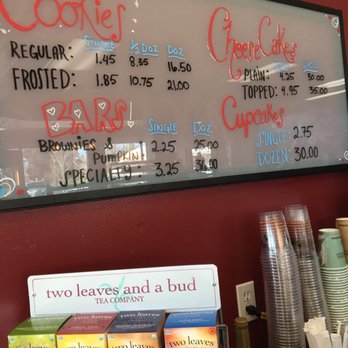 Cookies
SINGLE ½ DOZ DOZ
REGULAR: 1.45 8.35 16.50
FROSTED: 1.85 10.75 21.00
BARS
SINGLE DOZ
BROWNIES & PUMPKIN: 2.25 25.00
SPECIALTY: 3.25 36.00
CHEESECAKES
PLAIN: 4.25 30.00
TOPPED: 4.95 35.00
Cupcakes
SINGLE: 2.75
DOZEN: 30.00
two leaves and a bud
TEA COMPANY
two leaves
two leaves